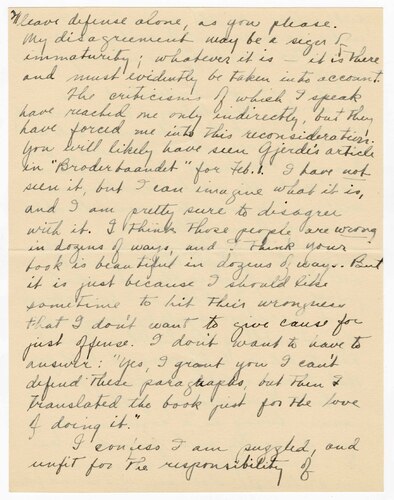 leave defense alone, as you please.
My disagreement may be a sign of
immaturity; whatever it is — it is there
and must evidently be taken into account.
The criticisms of which I speak
have reached me only indirectly, but they
have forced me into this reconsideration.
You will likely have seen Gjerde's article
in "Broderbaandet" for Feb. 1. I have not
seen it, but I can imagine what it is,
and I am pretty sure to disagree
with it. I think those people are wrong
in dozens of ways, and I think your
book is beautiful in dozens of ways. But
it is just because I should like
sometime to hit their wrongness
that I don't want to give cause for
just offense. I don't want to have to
answer: "Yes, I grant you I can't
defend these paragraphs, but then I
translated the book just for the love
of doing it."
I confess I am puzzled, and
unfit for the responsibility of